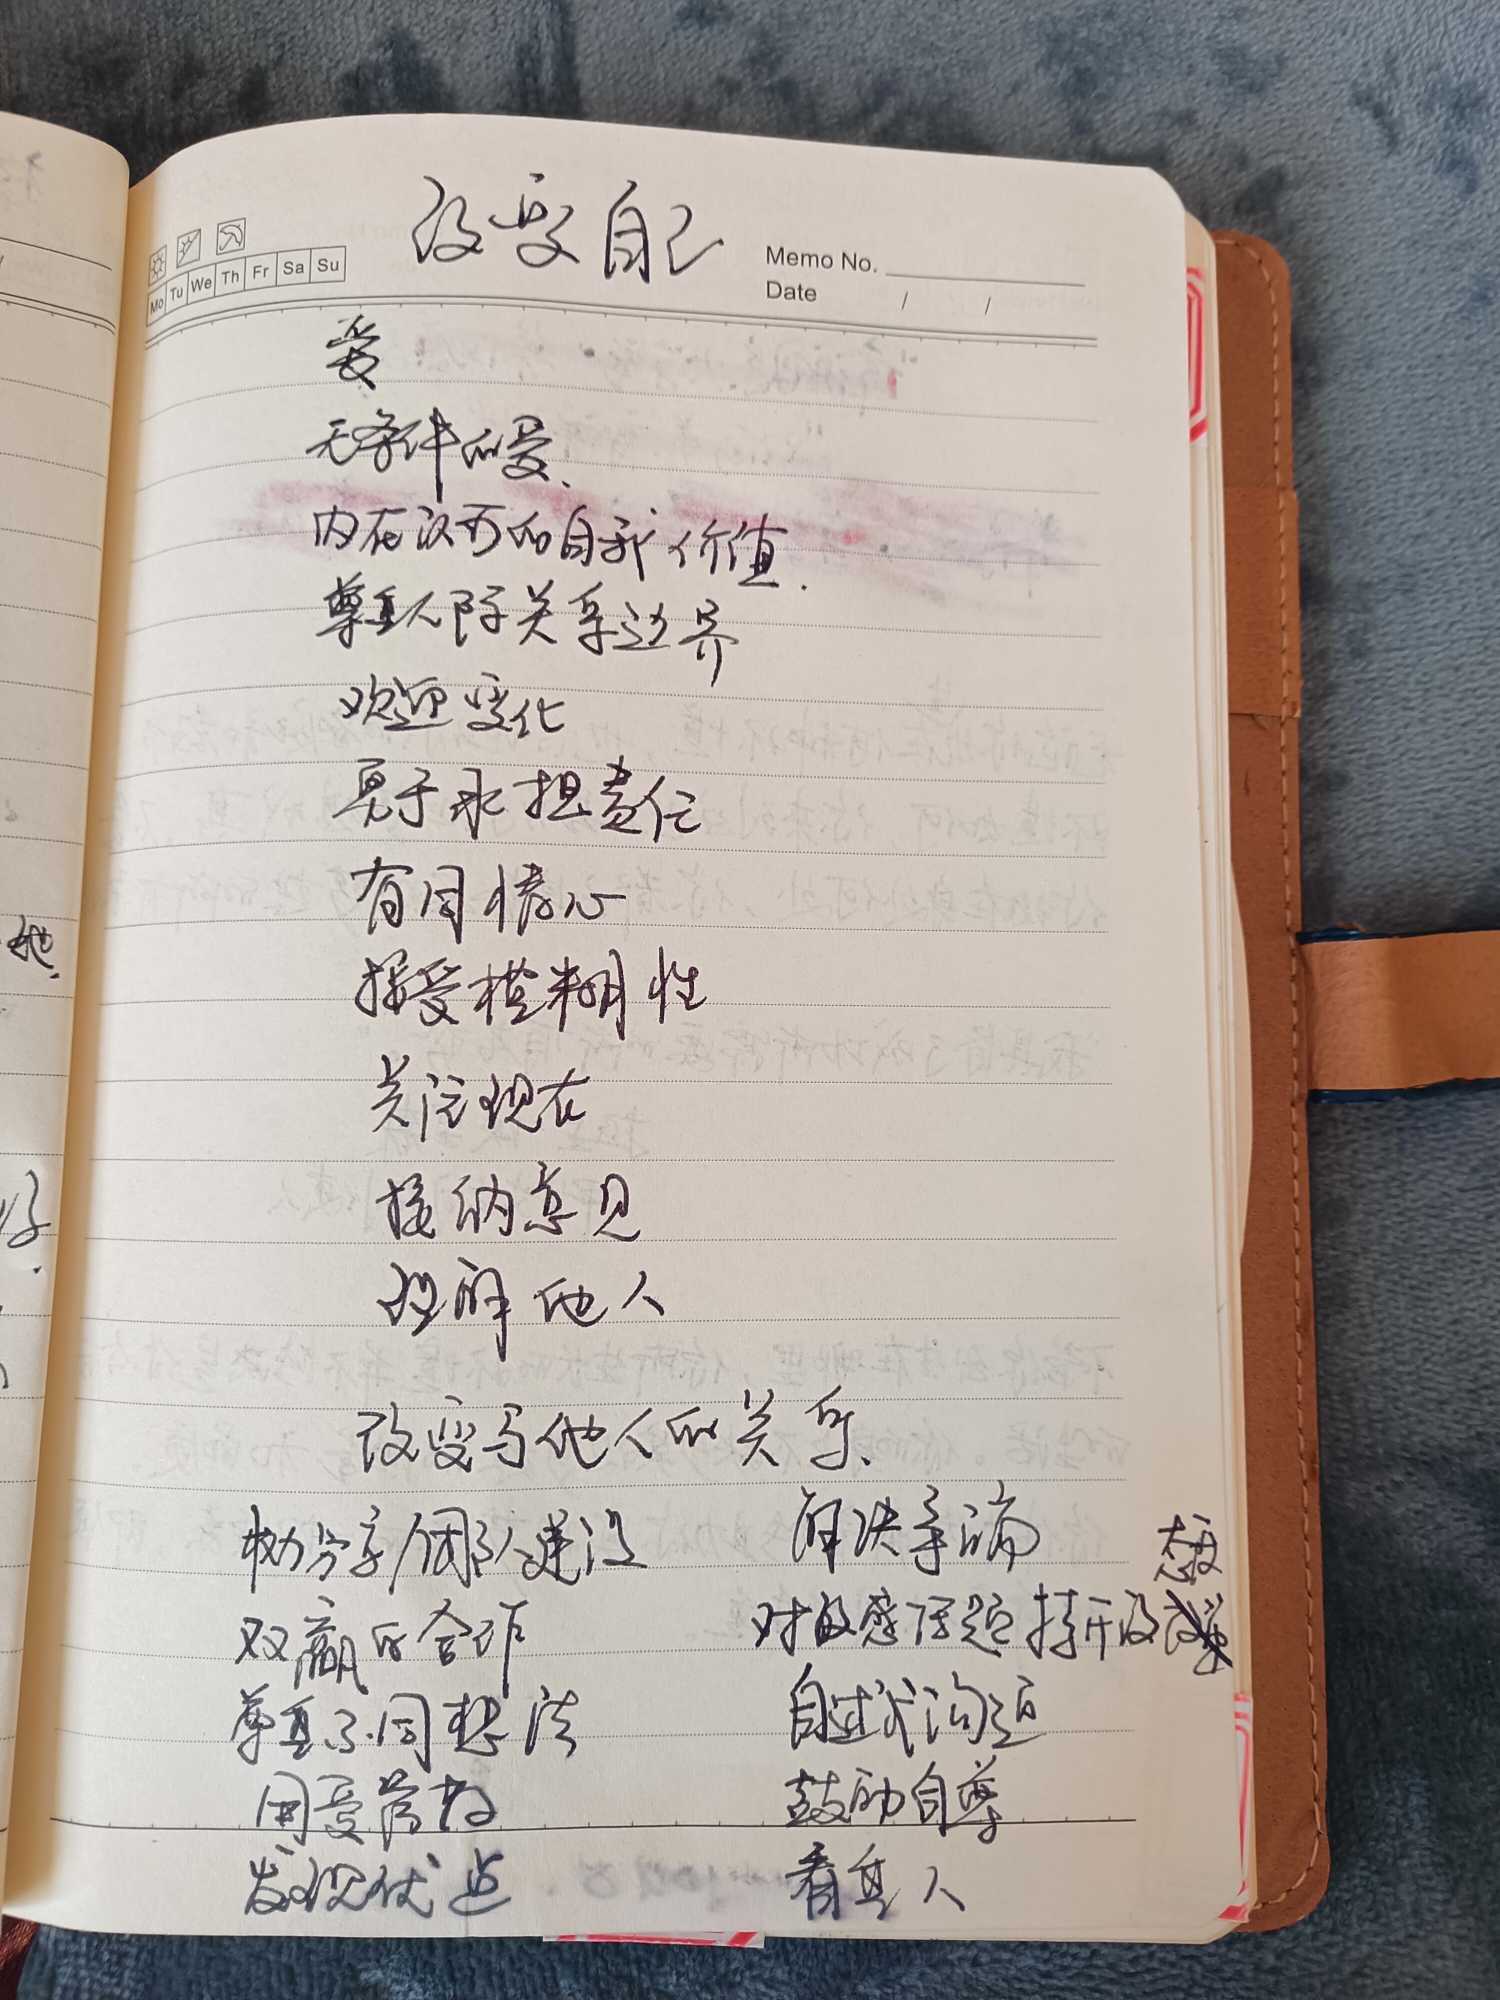 改变自己
Memo No.
Mo Tu We Th Fr Sa Su
Date / /
爱
无条件的爱.
内在认可的自我价值.
尊重人际关系边界
欢迎变化
勇于承担责任
有同情心
接受模糊性
关注现在
接纳意见
理解他人
改变与他人的关系.
权力分享/团队建设
解决争端
双赢的合作
对敏感话题持开放态度
尊重不同想法
自述式沟通
用爱管教
鼓励自尊
发现优点
看重人
她.
好.